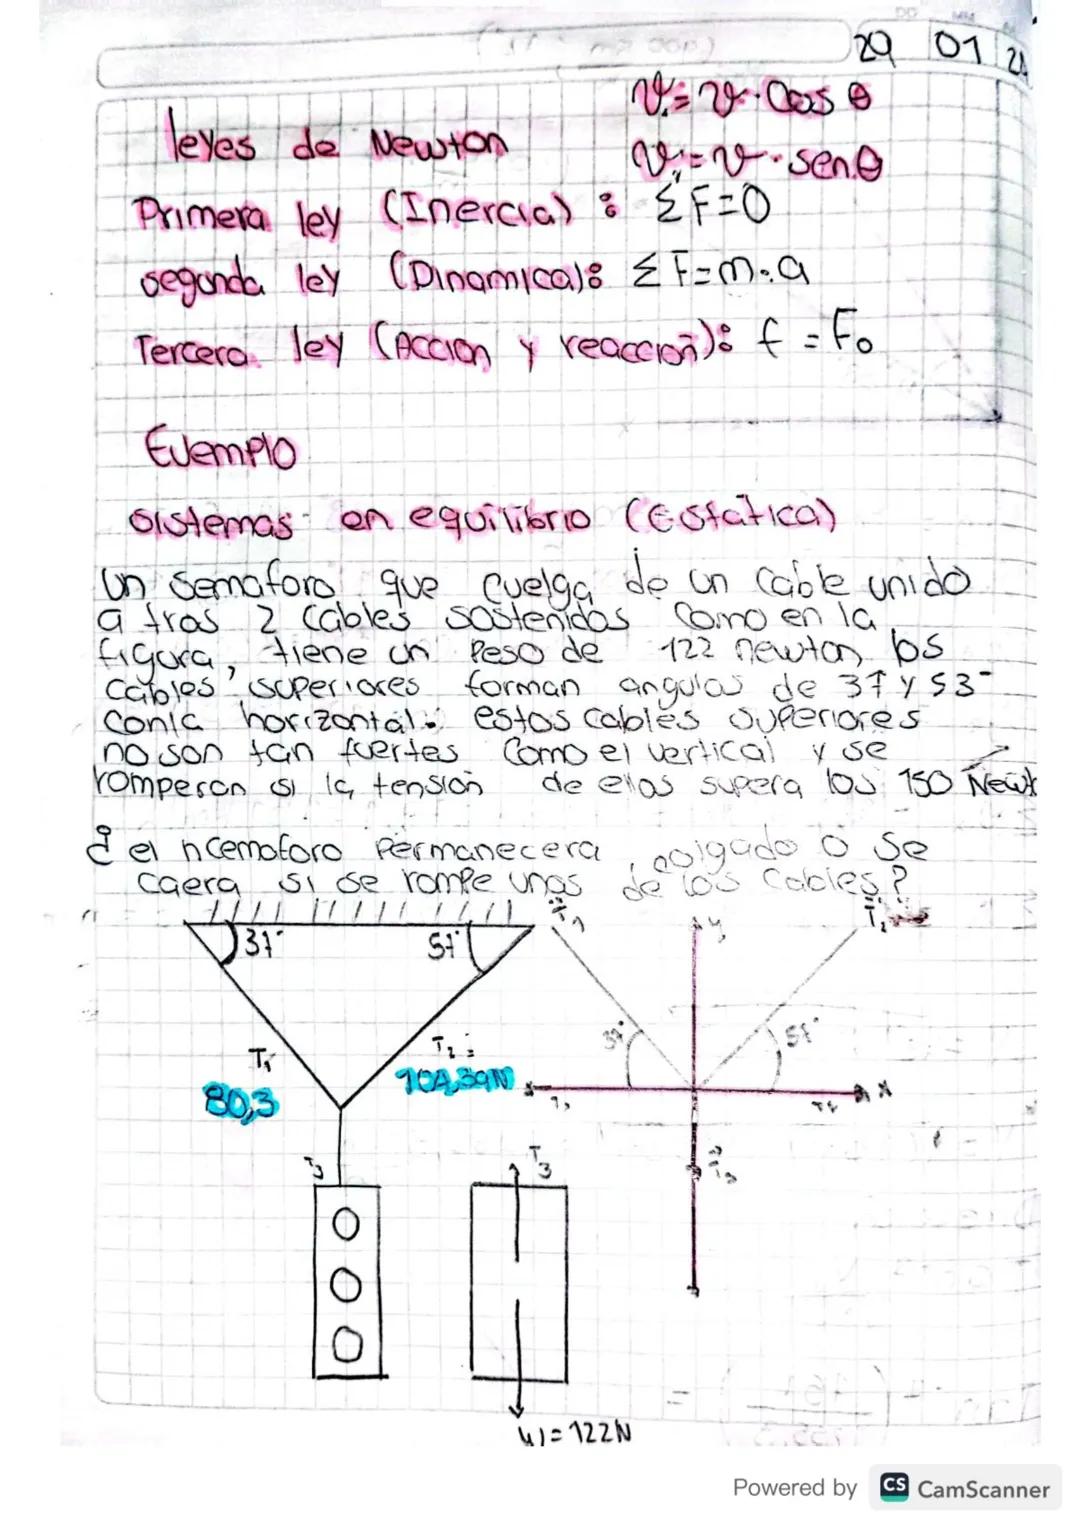 29 01 21
V = V · Cos θ
leyes de Newton
Vy = V · sen θ
Primera ley (Inercia) : ΣF=0
segunda ley (Dinamica): ΣF=m.a
Tercera ley (Accion y reaccion): f = Fo
EJemplo
sistemas en equilibrio (Estatica)
un semaforo que cuelga de un cable unido
a tros 2 cables sostenidos como en la
figura, tiene un Peso de 122 newton los
cables superiores forman angulos de 37 y 53°
con la horizontal. estos cables superiores
no son tan fuertes como el vertical y se
romperan si la tension de ellos supera los 150 Newt
¿ el ncemaforo Permanecera colgado o se
caera si se rompe unos de los cables?
37° 57°
T₁ T₂
y
37° 57°
T₁ T₂ =
80,3 104,39N
x
T₃ T₃
W = 122N
Powered by CS CamScanner